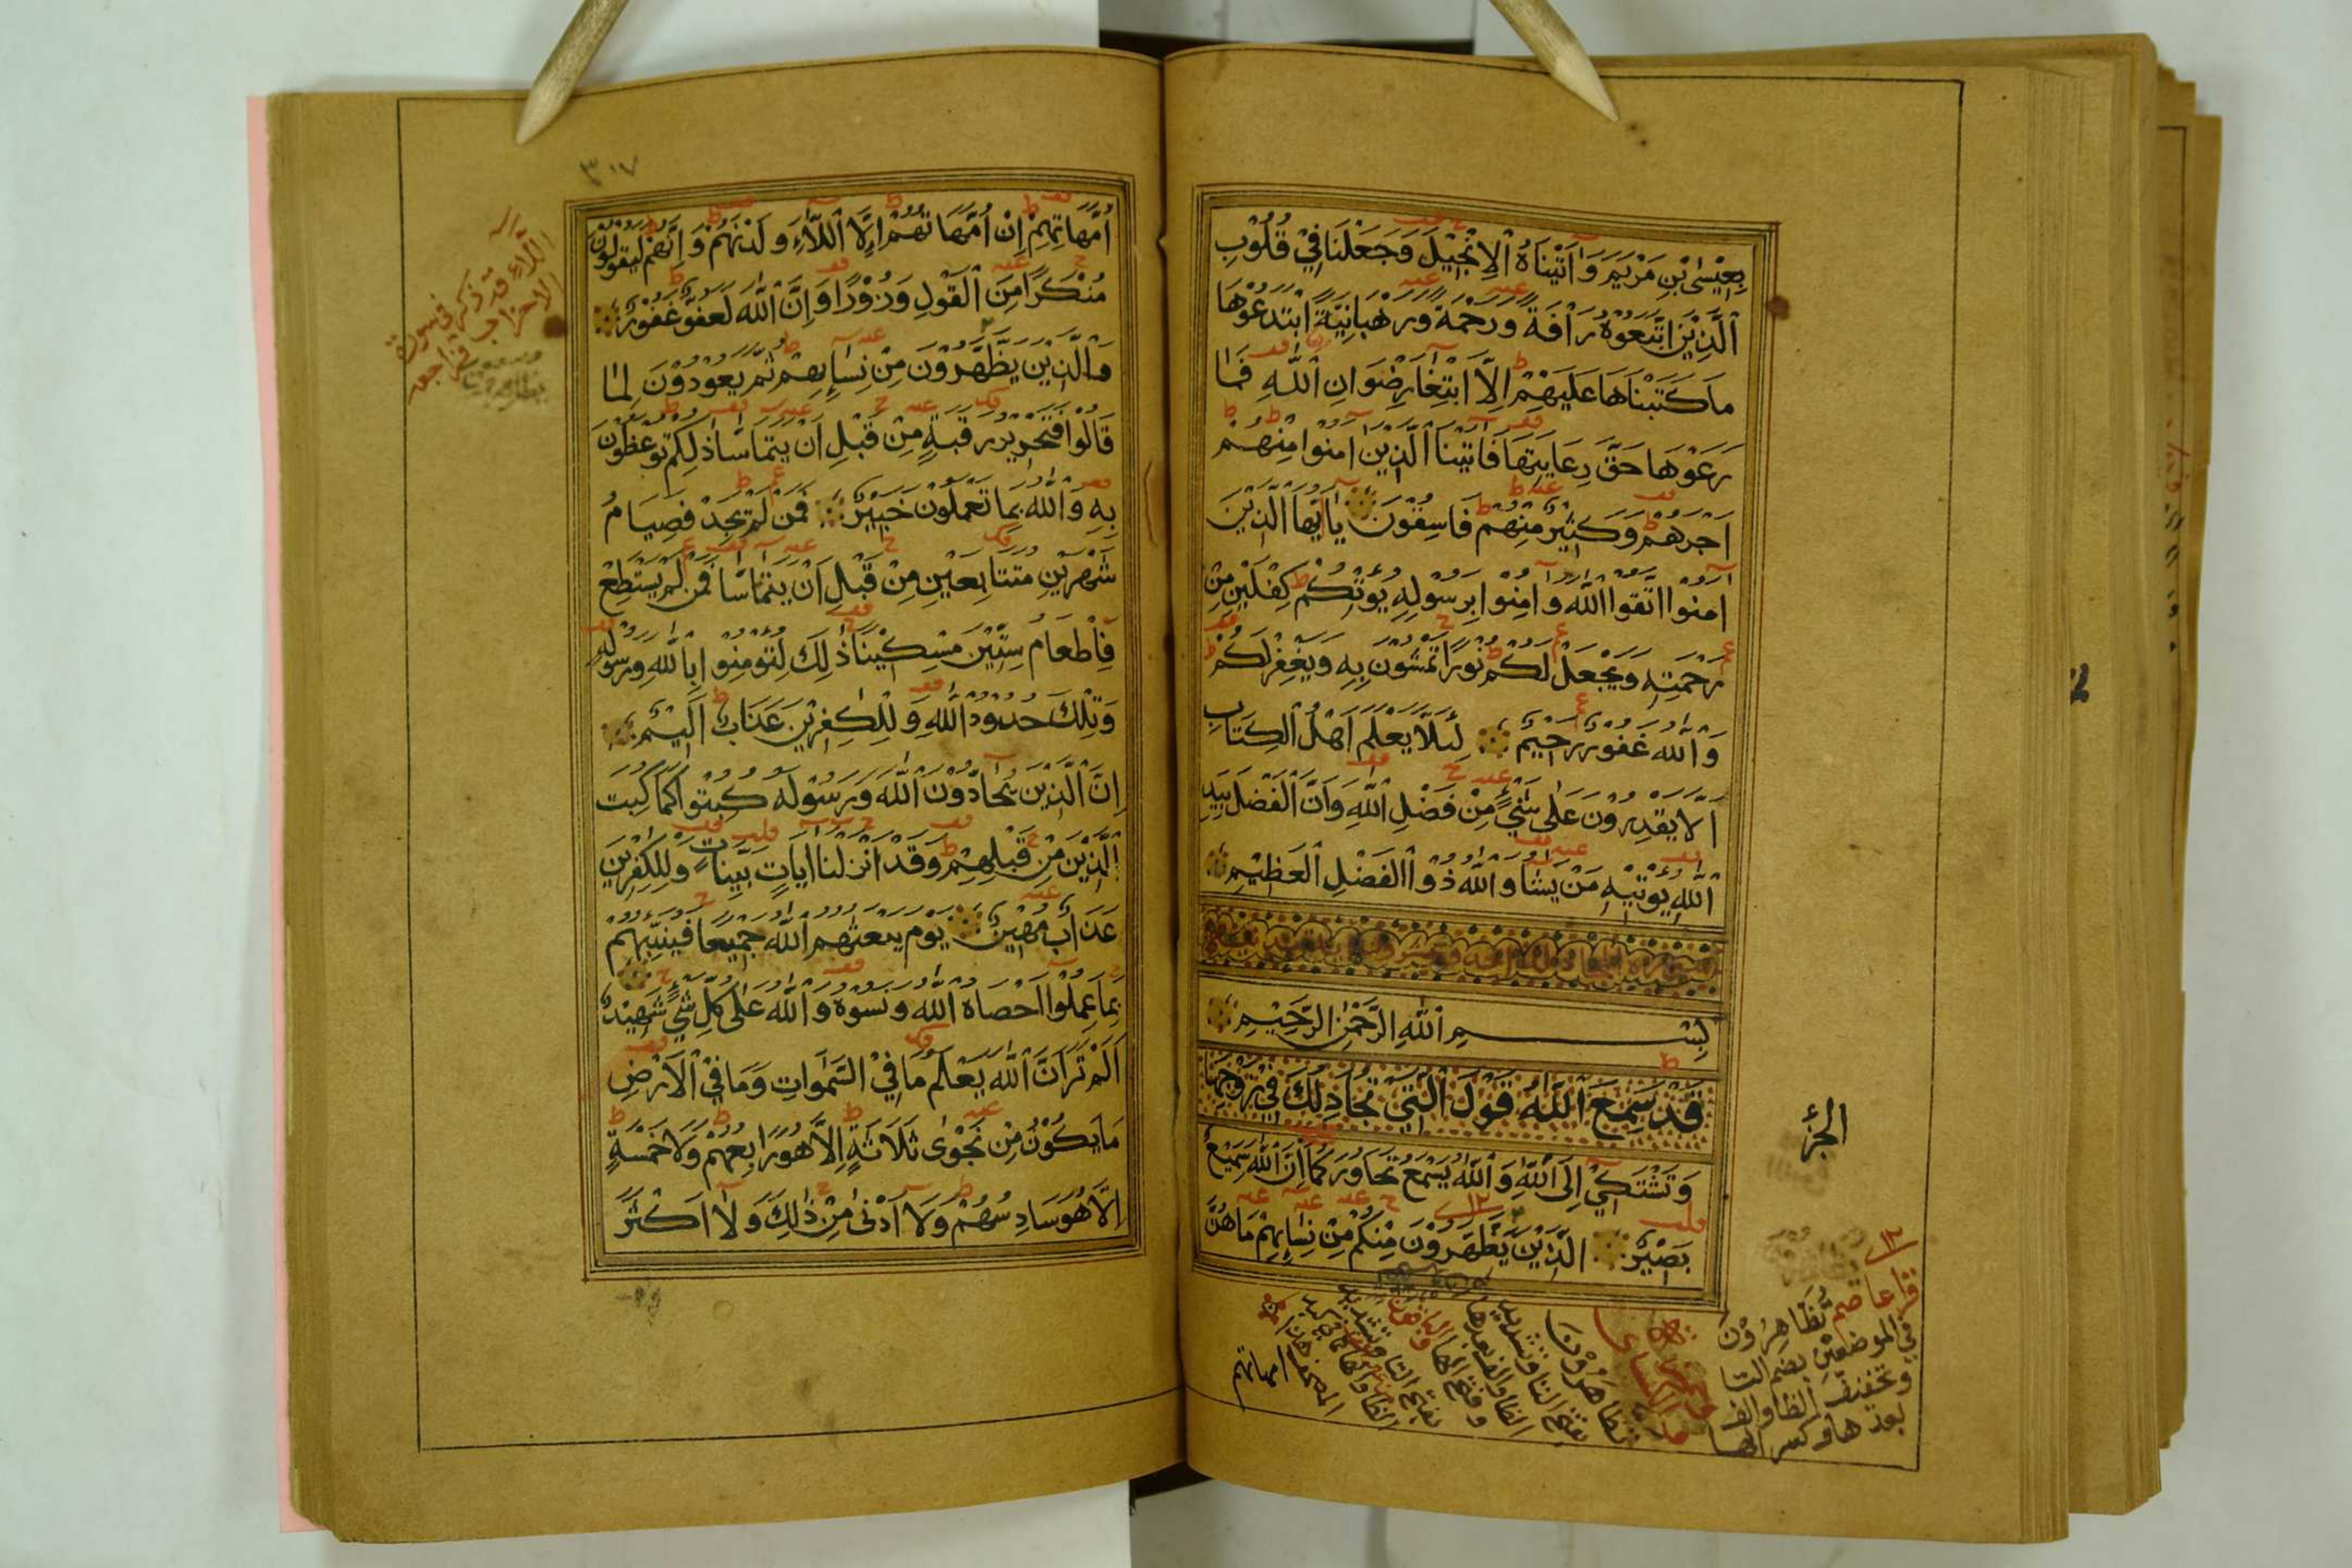 بِعِيْسٰى بْنِ مَرْيَمَ وَاٰتَيْنَاهُ الْاِنْجِيْلَ وَجَعَلْنَا فِيْ قُلُوْبِ
الَّذِيْنَ اتَّبَعُوْهُ رَاْفَةً وَرَحْمَةً وَرَهْبَانِيَّةً ابْتَدَعُوْهَا
مَا كَتَبْنَاهَا عَلَيْهِمْ اِلَّا ابْتِغَا رِضْوَانِ اللّٰهِ فَمَا
رَعَوْهَا حَقَّ رِعَايَتِهَا فَاٰتَيْنَا الَّذِيْنَ اٰمَنُوا مِنْهُمْ
اَجْرَهُمْ وَكَثِيْرٌ مِنْهُمْ فَاسِقُوْنَ يَا اَيُّهَا الَّذِيْنَ
اٰمَنُوا اتَّقُوا اللّٰهَ وَاٰمِنُوا بِرَسُوْلِهِ يُؤْتِكُمْ كِفْلَيْنِ مِنْ
رَحْمَتِهِ وَيَجْعَلْ لَكُمْ نُوْرًا تَمْشُوْنَ بِهِ وَيَغْفِرْ لَكُمْ
وَاللّٰهُ غَفُوْرٌ رَحِيْمٌ لِئَلَّا يَعْلَمَ اَهْلُ الْكِتَابِ
اَلَّا يَقْدِرُوْنَ عَلٰى شَيْءٍ مِنْ فَضْلِ اللّٰهِ وَاَنَّ الْفَضْلَ بِيَدِ
اللّٰهِ يُؤْتِيْهِ مَنْ يَشَا وَاللّٰهُ ذُوا الْفَضْلِ الْعَظِيْمِ
بِسْمِ اللّٰهِ الرَّحْمٰنِ الرَّحِيْمِ
قَدْ سَمِعَ اللّٰهُ قَوْلَ الَّتِيْ تُجَادِلُكَ فِيْ زَوْجِهَا
وَتَشْتَكِيْ اِلَى اللّٰهِ وَاللّٰهُ يَسْمَعُ تَحَاوُرَكُمَا اِنَّ اللّٰهَ سَمِيْعٌ
بَصِيْرٌ الَّذِيْنَ يَظَّهَّرُوْنَ مِنْكُمْ مِنْ نِسَائِهِمْ مَا هُنَّ
الجزء
قرا عاصم يُظَاهِرُوْنَ
في الموضعين بضم اليا
وتخفيف الظا والف
بعدها وكسر الها
امهاتهم
٣٠٧
اُمَّهَاتِهِمْ اِنْ اُمَّهَاتُهُمْ اِلَّا اللَّاءِ وَلَدْنَهُمْ وَاِنَّهُمْ لَيَقُوْلُوْنَ
مُنْكَرًا مِنَ الْقَوْلِ وَزُوْرًا وَاِنَّ اللّٰهَ لَعَفُوٌّ غَفُوْرٌ
وَالَّذِيْنَ يَظَّهَّرُوْنَ مِنْ نِسَائِهِمْ ثُمَّ يَعُوْدُوْنَ لِمَا
قَالُوْا فَتَحْرِيْرُ رَقَبَةٍ مِنْ قَبْلِ اَنْ يَتَمَاسَّا ذٰلِكُمْ تُوْعَظُوْنَ
بِهِ وَاللّٰهُ بِمَا تَعْمَلُوْنَ خَبِيْرٌ فَمَنْ لَمْ يَجِدْ فَصِيَامُ
شَهْرَيْنِ مُتَتَابِعَيْنِ مِنْ قَبْلِ اَنْ يَتَمَاسَّا فَمَنْ لَمْ يَسْتَطِعْ
فَاِطْعَامُ سِتِّيْنَ مِسْكِيْنًا ذٰلِكَ لِتُؤْمِنُوا بِاللّٰهِ وَرَسُوْلِهِ
وَتِلْكَ حُدُوْدُ اللّٰهِ وَلِلْكٰفِرِيْنَ عَذَابٌ اَلِيْمٌ
اِنَّ الَّذِيْنَ يُحَادُّوْنَ اللّٰهَ وَرَسُوْلَهُ كُبِتُوا كَمَا كُبِتَ
الَّذِيْنَ مِنْ قَبْلِهِمْ وَقَدْ اَنْزَلْنَا اٰيَاتٍ بَيِّنَاتٍ وَلِلْكٰفِرِيْنَ
عَذَابٌ مُهِيْنٌ يَوْمَ يَبْعَثُهُمُ اللّٰهُ جَمِيْعًا فَيُنَبِّئُهُمْ
بِمَا عَمِلُوا اَحْصَاهُ اللّٰهُ وَنَسُوْهُ وَاللّٰهُ عَلٰى كُلِّ شَيْءٍ شَهِيْدٌ
اَلَمْ تَرَ اَنَّ اللّٰهَ يَعْلَمُ مَا فِيْ السَّمٰوَاتِ وَمَا فِيْ الْاَرْضِ
مَا يَكُوْنُ مِنْ نَجْوٰى ثَلَاثَةٍ اِلَّا هُوَ رَابِعُهُمْ وَلَا خَمْسَةٍ
اِلَّا هُوَ سَادِسُهُمْ وَلَا اَدْنٰى مِنْ ذٰلِكَ وَلَا اَكْثَرَ
اللَّاءِ قد ذكر في سورة
الاحزاب فراجعه